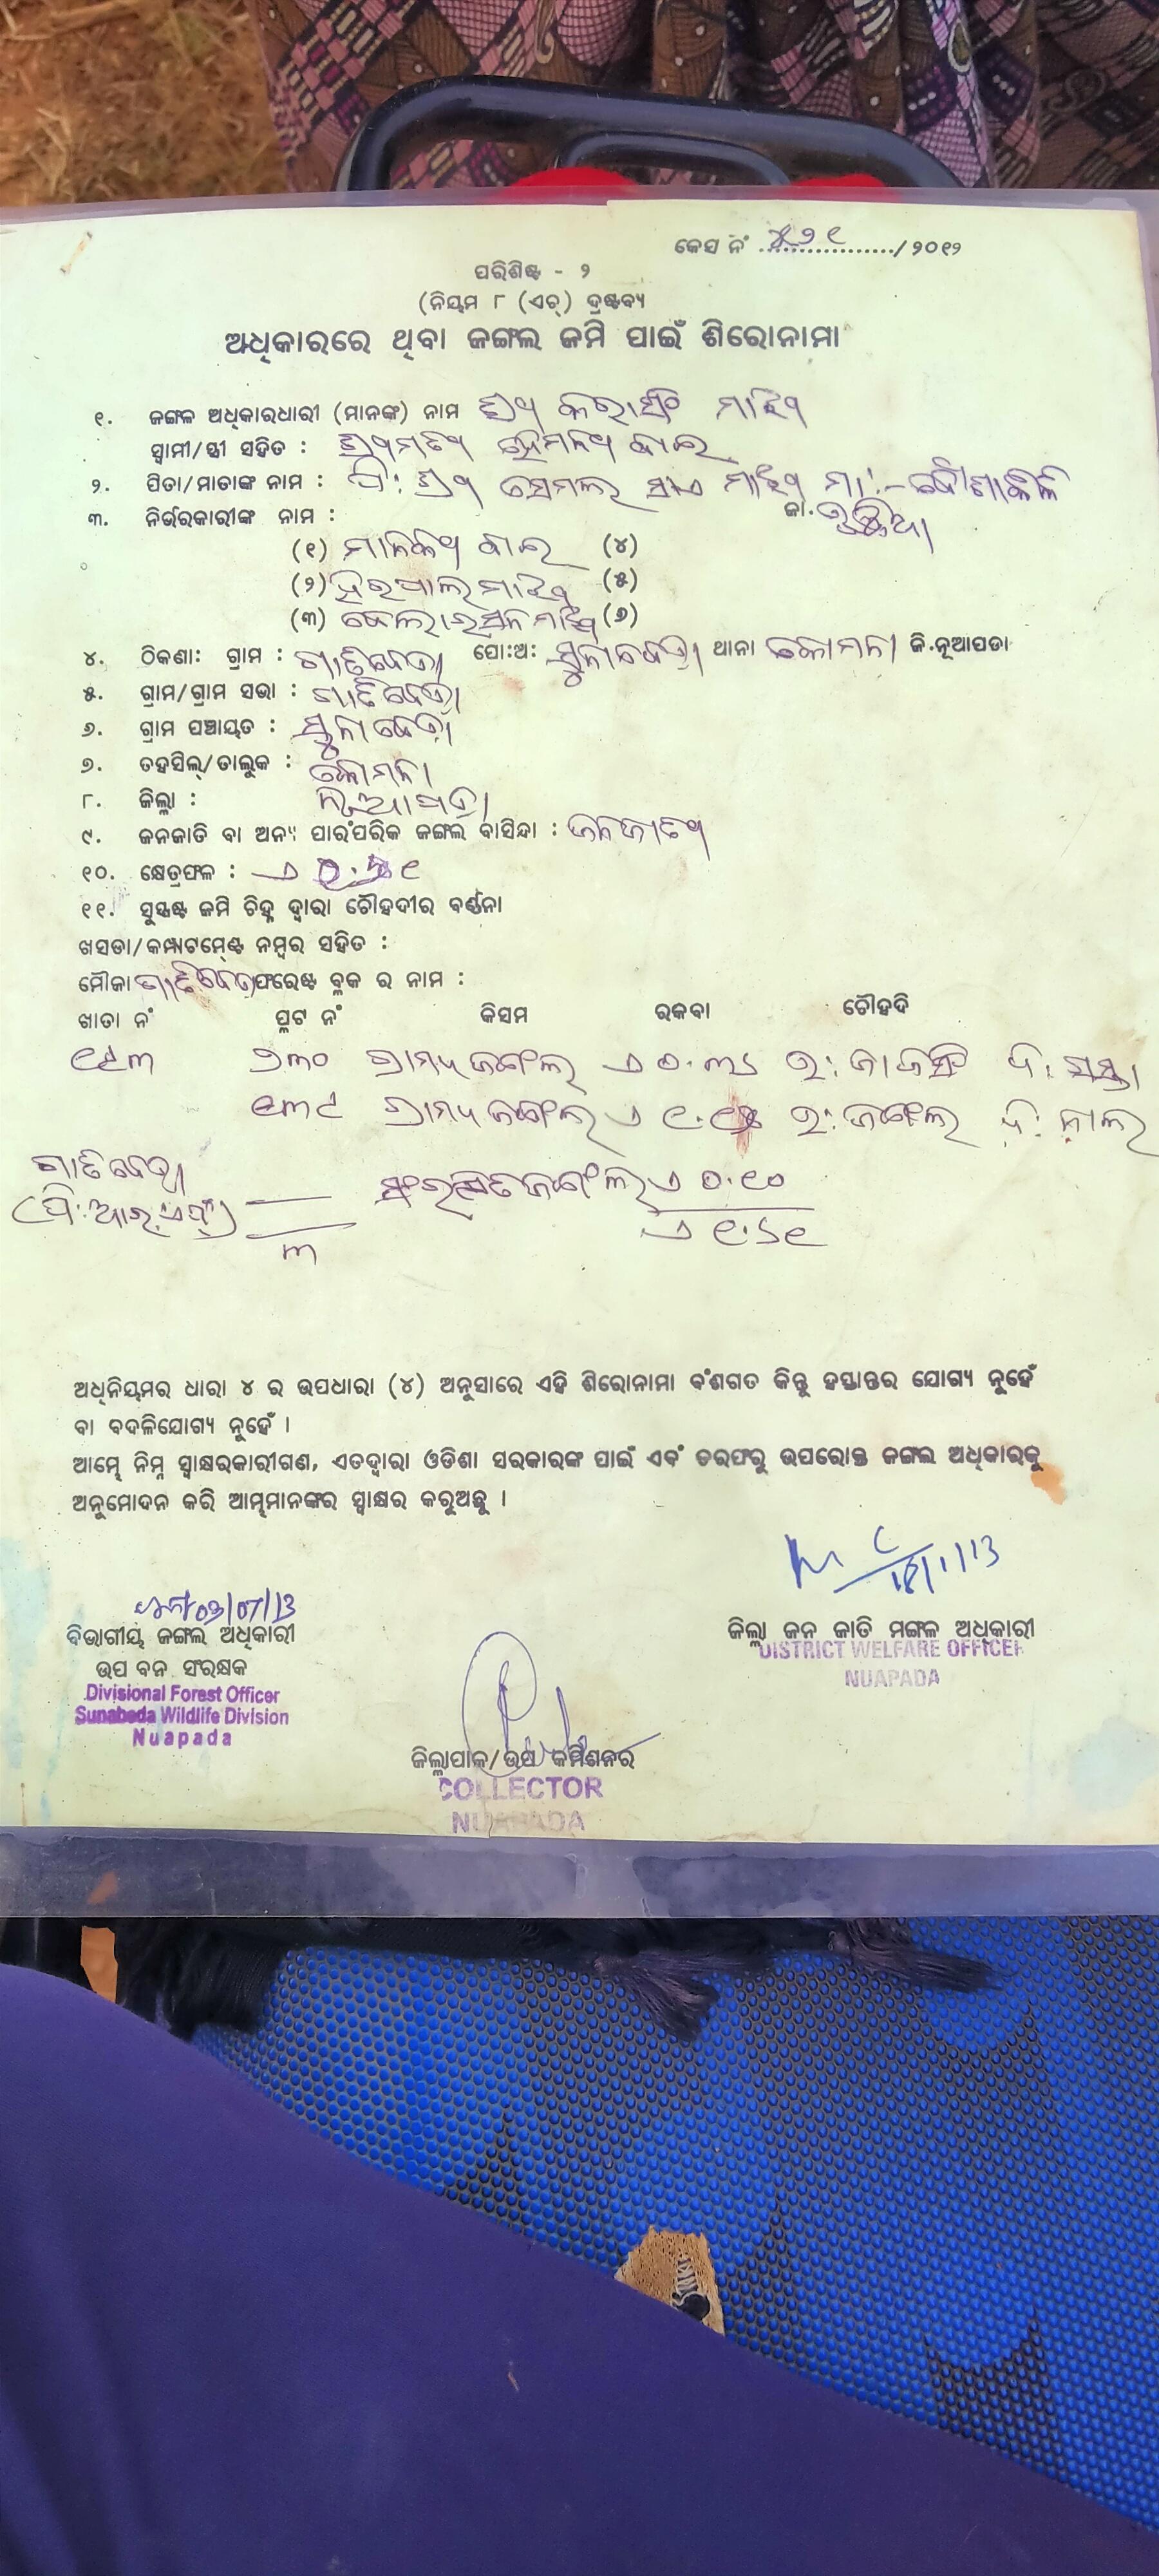 କେସ ନଂ ୪୨୧/୨୦୧୨
ପରିଶିଷ୍ଟ - ୨
(ନିୟମ ୮ (ଏଚ୍) ଦ୍ରଷ୍ଟବ୍ୟ
ଅଧିକାରରେ ଥିବା ଜଙ୍ଗଲ ଜମି ପାଇଁ ଶିରୋନାମା
୧. ଜଙ୍ଗଲ ଅଧିକାରଧାରୀ (ମାନଙ୍କ) ନାମ ଶ୍ରୀ ମାଝି
ସ୍ବାମୀ/ସ୍ତ୍ରୀ ସହିତ : ଶ୍ରୀମତୀ ବାଇ
୨. ପିତା/ମାତାଙ୍କ ନାମ : ପି: ଶ୍ରୀ ମାଝି ମା:-
୩. ନିର୍ଭରକାରୀଙ୍କ ନାମ : ଜା. ଭୁଞ୍ଜିଆ
(୧) ବାଇ (୪)
(୨) ହିରପାଲ ମାଝି (୫)
(୩) ମାଝି (୬)
୪. ଠିକଣା: ଗ୍ରାମ : ଗାତିବେଡ଼ା ପୋ:ଅ: ସୁନାବେଡ଼ା ଥାନା କୋମନା ଜି.ନୂଆପଡା
୫. ଗ୍ରାମ/ଗ୍ରାମ ସଭା : ଗାତିବେଡ଼ା
୬. ଗ୍ରାମ ପଞ୍ଚାୟତ : ସୁନାବେଡ଼ା
୭. ତହସିଲ୍/ତାଲୁକ : କୋମନା
୮. ଜିଲ୍ଲା : ନୂଆପଡ଼ା
୯. ଜନଜାତି ବା ଅନ୍ୟ ପାରଂପରିକ ଜଙ୍ଗଲ ବାସିନ୍ଦା : ଜନଜାତି
୧୦. କ୍ଷେତ୍ରଫଳ :
୧୧. ସୁସ୍ପଷ୍ଟ ଜମି ଚିହ୍ନ ଦ୍ୱାରା ଚୌହଦୀର ବର୍ଣ୍ଣନା
ଖସଡା/କମ୍ପାଟମେଣ୍ଟ ନମ୍ବର ସହିତ :
ମୌଜା ଗାତିବେଡ଼ା ଫରେଷ୍ଟ ବ୍ଲକ ର ନାମ :
ଖାତା ନଂ ପ୍ଲଟ ନଂ କିସମ ରକବା ଚୌହଦି
୧୫୩ ୭୩୦ ଗ୍ରାମ୍ୟ ଜଙ୍ଗଲ ଏ ୦.୩୪ ଉ: ଦ: ରାସ୍ତା
୧୩୯ ଗ୍ରାମ୍ୟ ଜଙ୍ଗଲ ଏ ଉ: ଜଙ୍ଗଲ ଦ: ନାଲ
ଗାତିବେଡ଼ା
(ପି.ଆର.ଏଫ୍) ସଂରକ୍ଷିତ ଜଙ୍ଗଲ ଏ ୦.୧୦
୩ ଏ ୧.୬୧
ଅଧିନିୟମର ଧାରା ୪ ର ଉପଧାରା (୪) ଅନୁସାରେ ଏହି ଶିରୋନାମା ବଂଶଗତ କିନ୍ତୁ ହସ୍ତାନ୍ତର ଯୋଗ୍ୟ ନୁହେଁ
ବା ବଦଳିଯୋଗ୍ୟ ନୁହେଁ ।
ଆମ୍ଭେ ନିମ୍ନ ସ୍ୱାକ୍ଷରକାରୀଗଣ, ଏତଦ୍ୱାରା ଓଡିଶା ସରକାରଙ୍କ ପାଇଁ ଏବଂ ତରଫରୁ ଉପରୋକ୍ତ ଜଙ୍ଗଲ ଅଧିକାରକୁ
ଅନୁମୋଦନ କରି ଆମ୍ଭମାନଙ୍କର ସ୍ୱାକ୍ଷର କରୁଅଛୁ ।
18/1/13
03/07/13
ବିଭାଗୀୟ ଜଙ୍ଗଲ ଅଧିକାରୀ
ଉପ ବନ ସଂରକ୍ଷକ
Divisional Forest Officer
Sunabeda Wildlife Division
Nuapada
ଜିଲ୍ଲା ଜନ ଜାତି ମଙ୍ଗଳ ଅଧିକାରୀ
DISTRICT WELFARE OFFICER
NUAPADA
ଜିଲ୍ଲାପାଳ/ଉପ କମିଶନର
COLLECTOR
NUAPADA